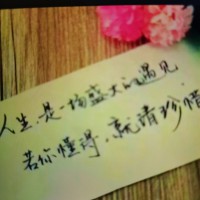 人生,是一场盛大的遇见
若你懂得,就请珍惜